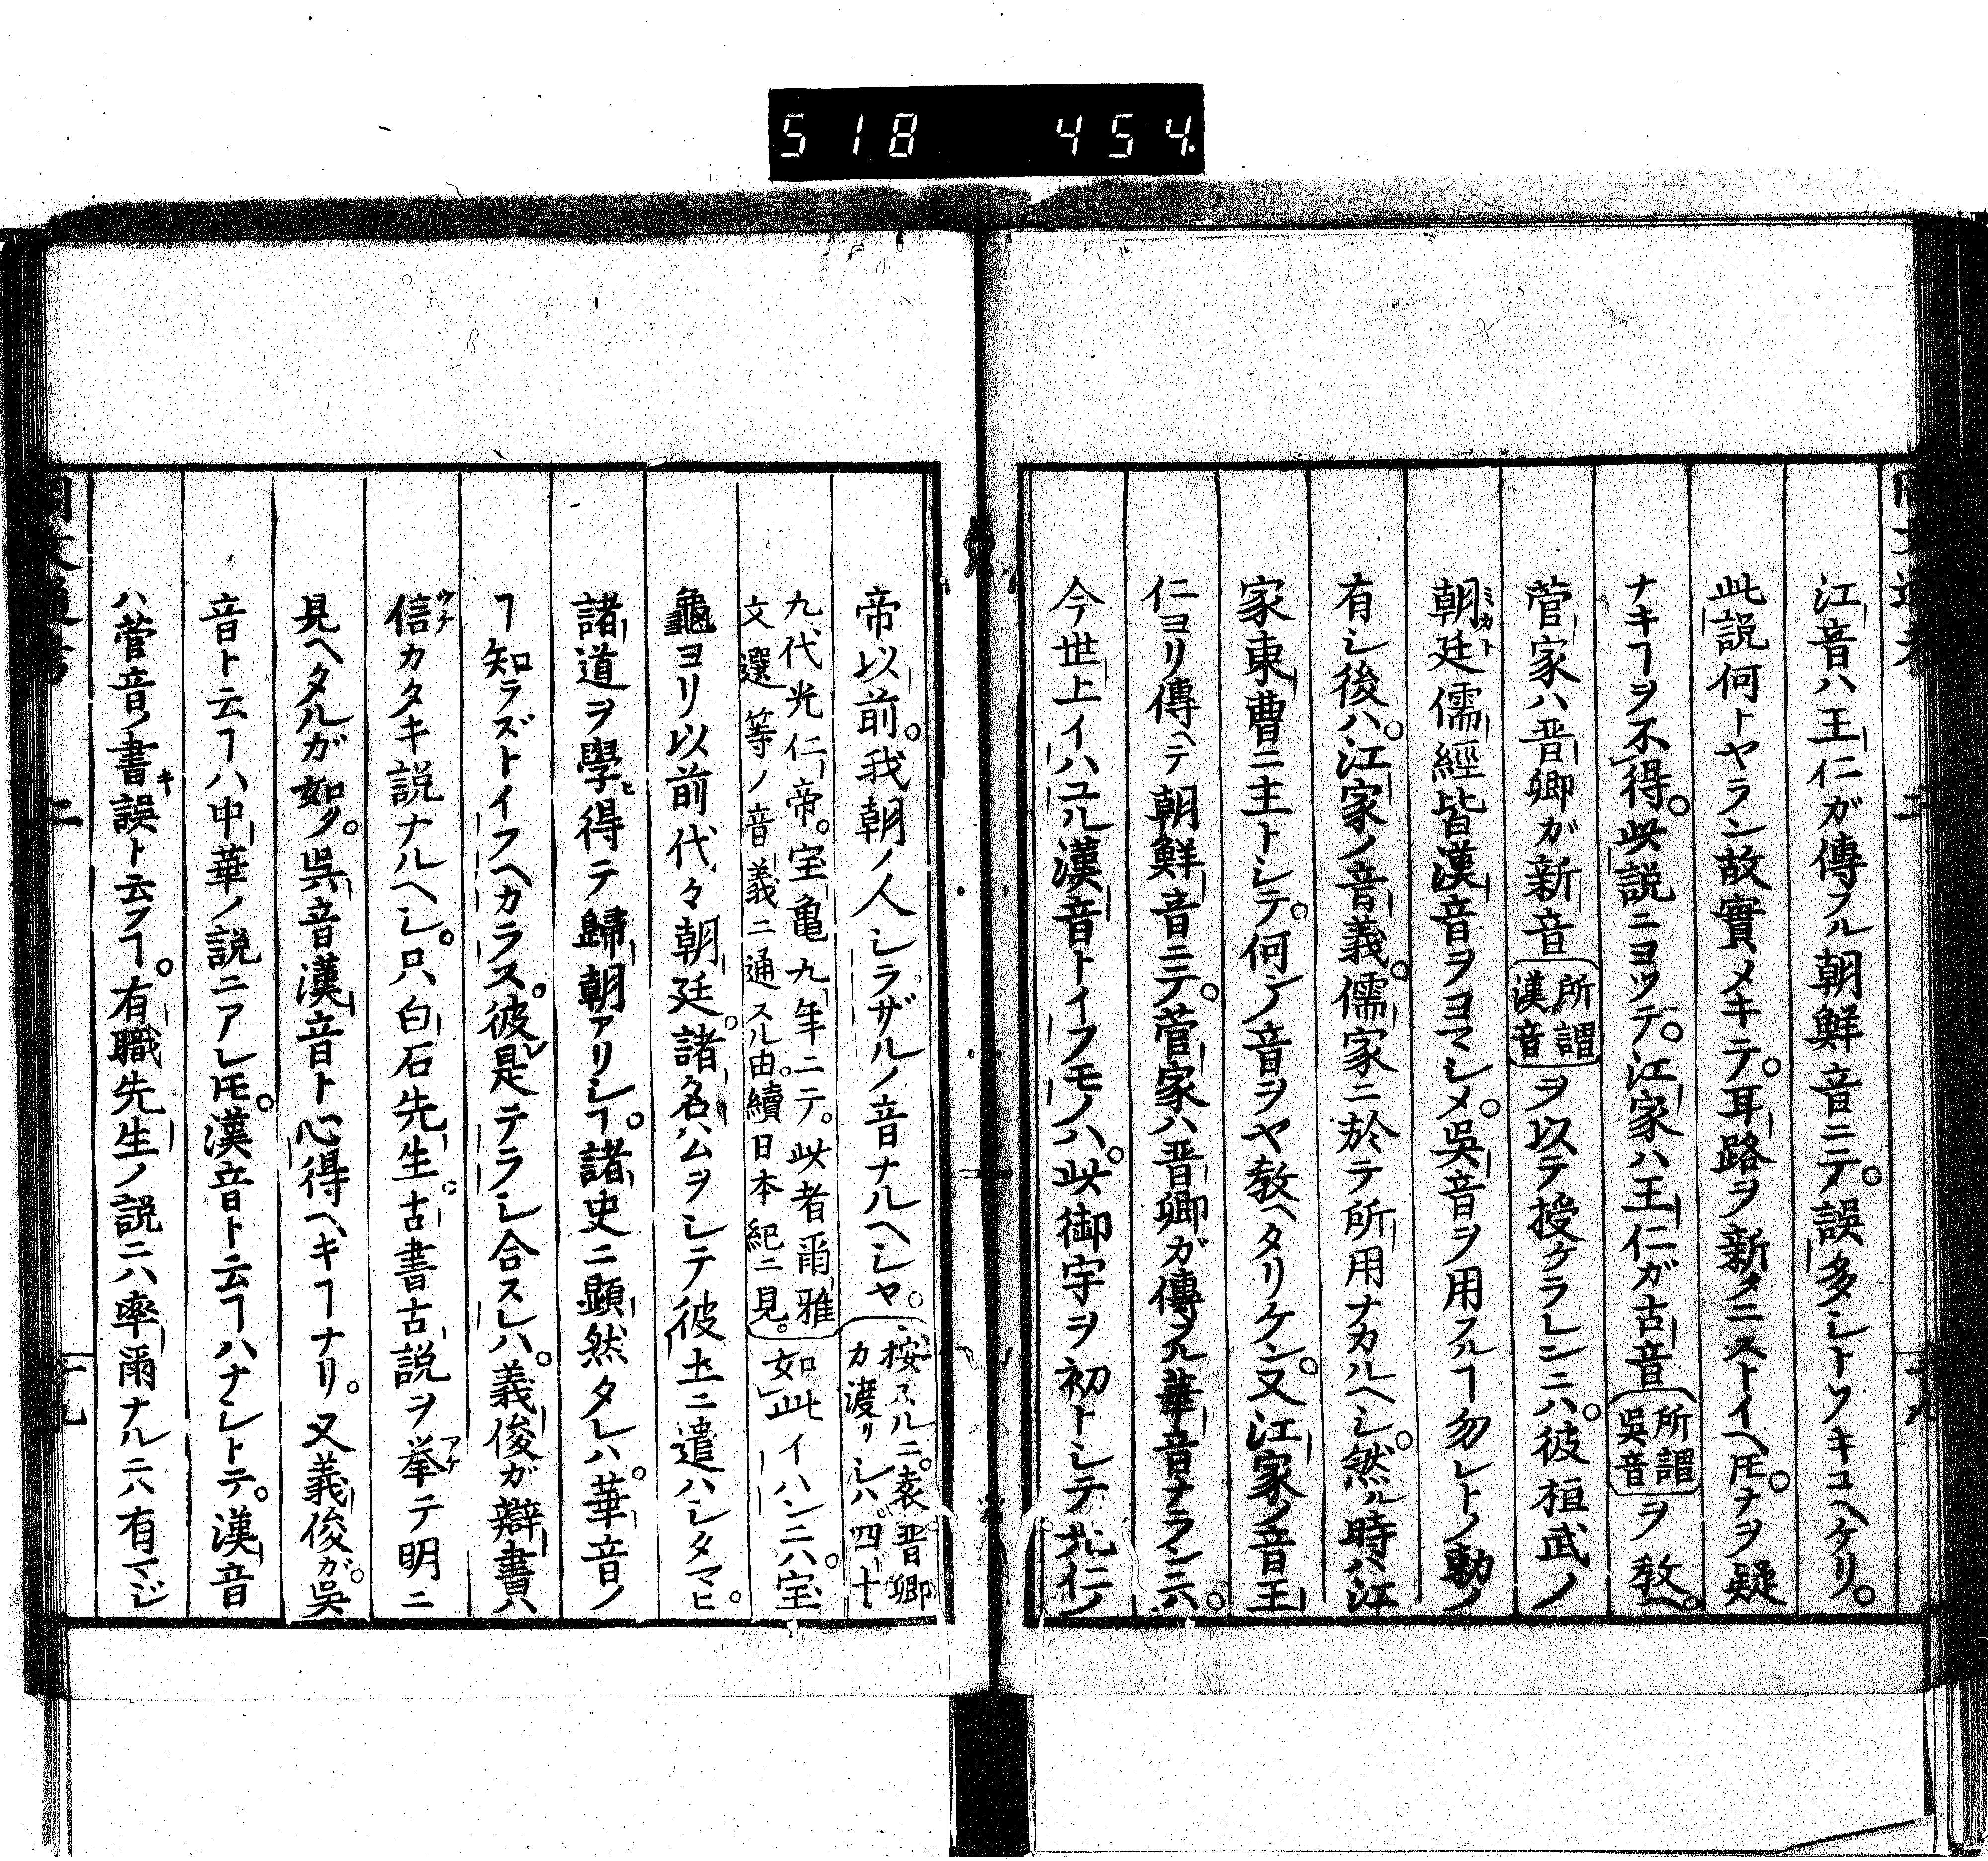 518 454.
江音ハ王仁ガ傳フル朝鮮音ニテ。誤多シトソキコヘケリ。
此説何トヤラン故實メキテ。耳路ヲ新タニストイヘ𪜈。ナヲ疑
ナキヿヲ不得。此説ニヨツテ。江家ハ王仁ガ古音
所謂
吳音
ヲ敎ヘ。
菅家ハ晋卿ガ新音
所謂
漢音
ヲ以テ授ケラレンニハ。彼桓武ノ
朝廷儒經皆漢音ヲヨマシメ。吳音ヲ用フルヿ勿レトノ勅ノ
ミカト
有シ後ハ。江家ノ音義。儒家ニ於テ所用ナカルヘシ。然ル時ハ江
家東曹ニ主トシテ。何ノ音ヲヤ敎ヘタリケン。又江家ノ音王
仁ヨリ傳ヘテ朝鮮音ニテ。菅家ハ晋卿ガ傳フル華音ナランニハ。
今世上イハユル漢音トイフモノハ。此御宇ヲ初トシテ光仁ノ
帝以前。我朝ノ人シラザルノ音ナルヘシヤ。
按スルニ。袁晋卿
カ渡リシハ。四十
九代光仁帝。宝亀九年ニテ。此者爾雅
文選等ノ音義ニ通スル由。續日本紀ニ見。
如此イハンニハ。宝
龜ヨリ以前代々朝廷。諸名ハムヲシテ彼土ニ遣ハシタマヒ。
諸道ヲ學ヒ得テ歸朝アリシヿ。諸史ニ顯然タレハ。華音ノ
ヿ知ラズトイフヘカラス。彼レ是テラシ合スレハ。義俊ガ辯書ハ
信カタキ説ナルヘシ。只白石先生。古書古説ヲ挙テ明ニ
ウケ
アケ
見ヘタルガ如ク。吳音漢音ト心得ヘキヿナリ。又義俊ガ。吳
音ト云ヿハ中華ノ説ニアレ𪜈。漢音ト云ヿハナシトテ。漢音
ハ菅音ノ書キ誤ト云フヿ。有職先生ノ説ニハ率爾ナルニハ有マジ